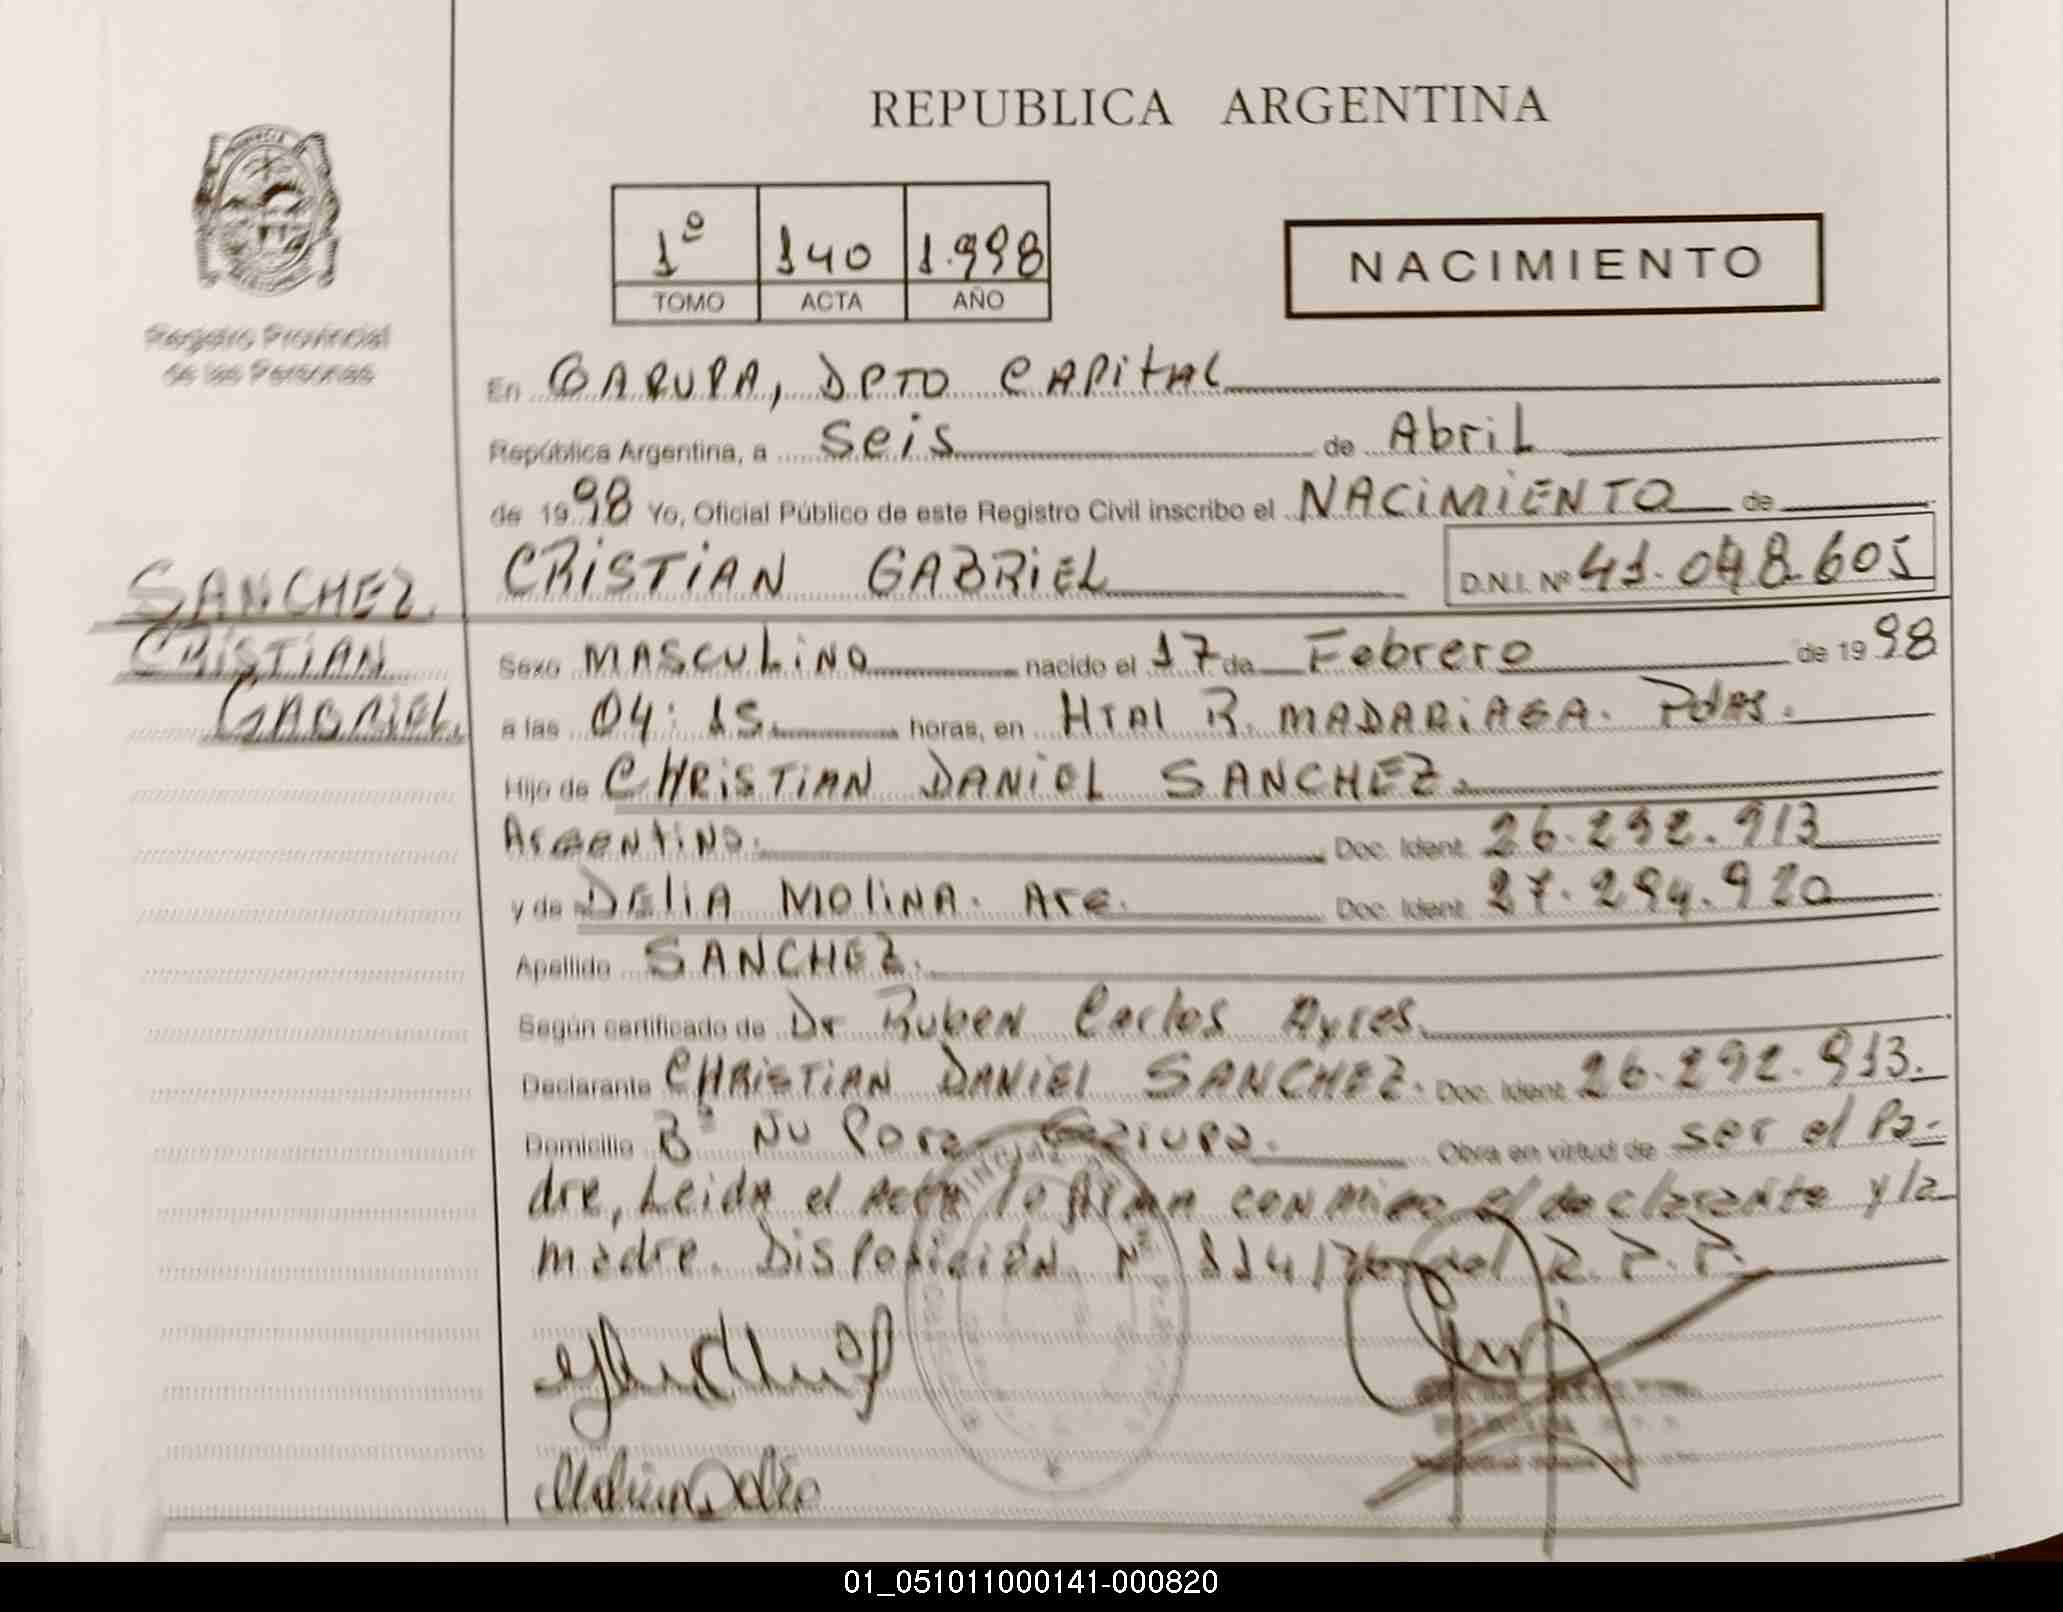 REPUBLICA ARGENTINA
1º 140 1.998
TOMO ACTA AÑO
NACIMIENTO
Registro Provincial
de las Personas
En GARUPA, DPTO CAPITAL
República Argentina, a Seis de Abril
de 1998 Yo, Oficial Público de este Registro Civil inscribo el NACIMIENTO de
CRISTIAN GABRIEL D.N.I. Nº 41.048.605
SANCHEZ.
CRISTIAN
GABRIEL.
Sexo MASCULINO nacido el 17 de Febrero de 1998
a las 04:15. horas, en HTAL R. MADARIAGA. Pdas.
Hijo de CHRISTIAN DANIEL SANCHEZ.
Argentino. Doc. Ident. 26.292.913
y de DELIA MOLINA. Arg. Doc. Ident. 27.294.920
Apellido SANCHEZ.
Según certificado de Dr Ruben Carlos Ayres.
Declarante CHRISTIAN DANIEL SANCHEZ. Doc. Ident. 26.292.913.
Domicilio Bº Ñu Pora Garupa. Obra en virtud de ser el Pa-
dre, Leida el Acta la firma conmigo el declarante y la
madre. Disposición Nº 114/76 del R.P.P.
Molina Delia
01_051011000141-000820